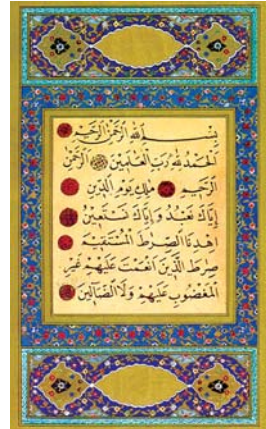 بِسْمِ اللّٰهِ الرَّحْمٰنِ الرَّحِيمِ
اَلْحَمْدُ لِلّٰهِ رَبِّ الْعٰلَمِينَ الرَّحْمٰنِ
الرَّحِيمِ مٰلِكِ يَوْمِ الدِّينِ
اِيَّاكَ نَعْبُدُ وَاِيَّاكَ نَسْتَعِينُ
اِهْدِنَا الصِّرٰطَ الْمُسْتَقِيمَ
صِرٰطَ الَّذِينَ اَنْعَمْتَ عَلَيْهِمْ غَيْرِ
الْمَغْضُوبِ عَلَيْهِمْ وَلَا الضَّالِّينَ